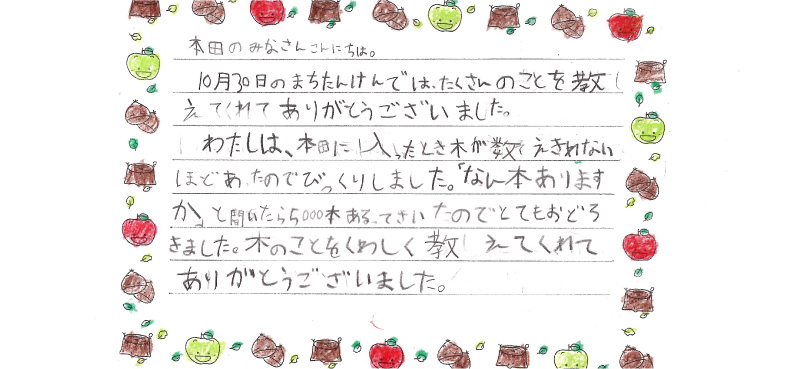 本田のみなさんこんにちは。
10月30日のまちたんけんでは、たくさんのことを教
えてくれてありがとうございました。
わたしは、本田に入ったとき木が数えきれない
ほどあったのでびっくりしました。「なん本あります
か」と聞いたら5000本あるってきいたのでとてもおどろ
きました。木のことをくわしく教えてくれて
ありがとうございました。